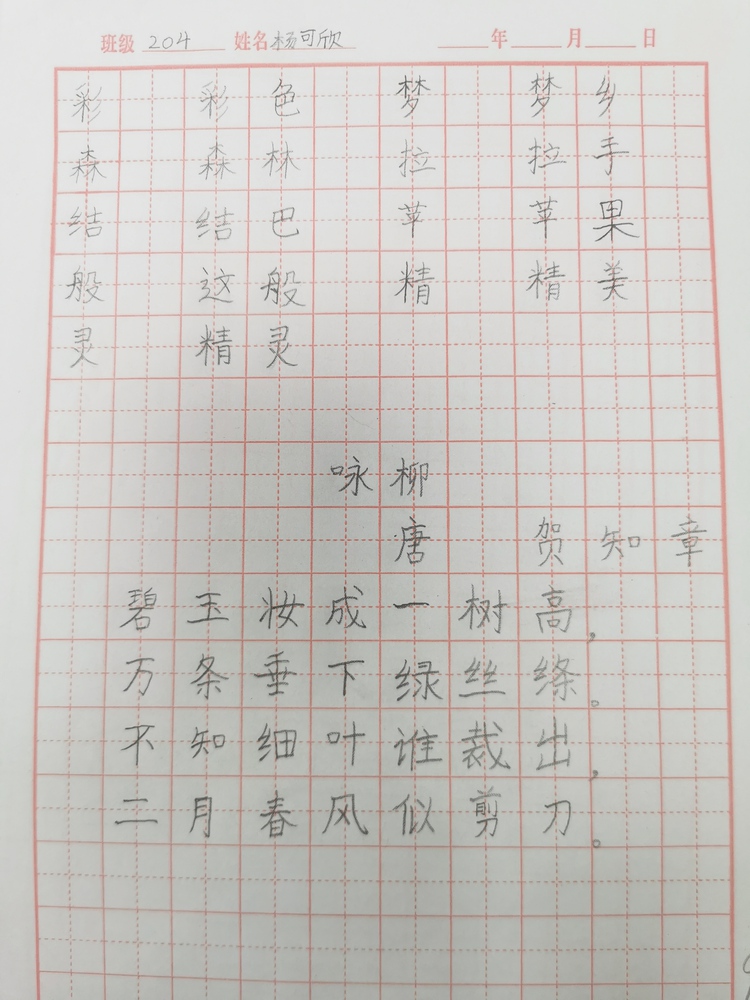 班级 204 姓名 杨可欣 年 月 日
彩 彩色 梦 梦乡
森 森林 拉 拉手
结 结巴 苹 苹果
般 这般 精 精美
灵 精灵
咏柳
唐 贺知章
碧玉妆成一树高，
万条垂下绿丝绦。
不知细叶谁裁出，
二月春风似剪刀。